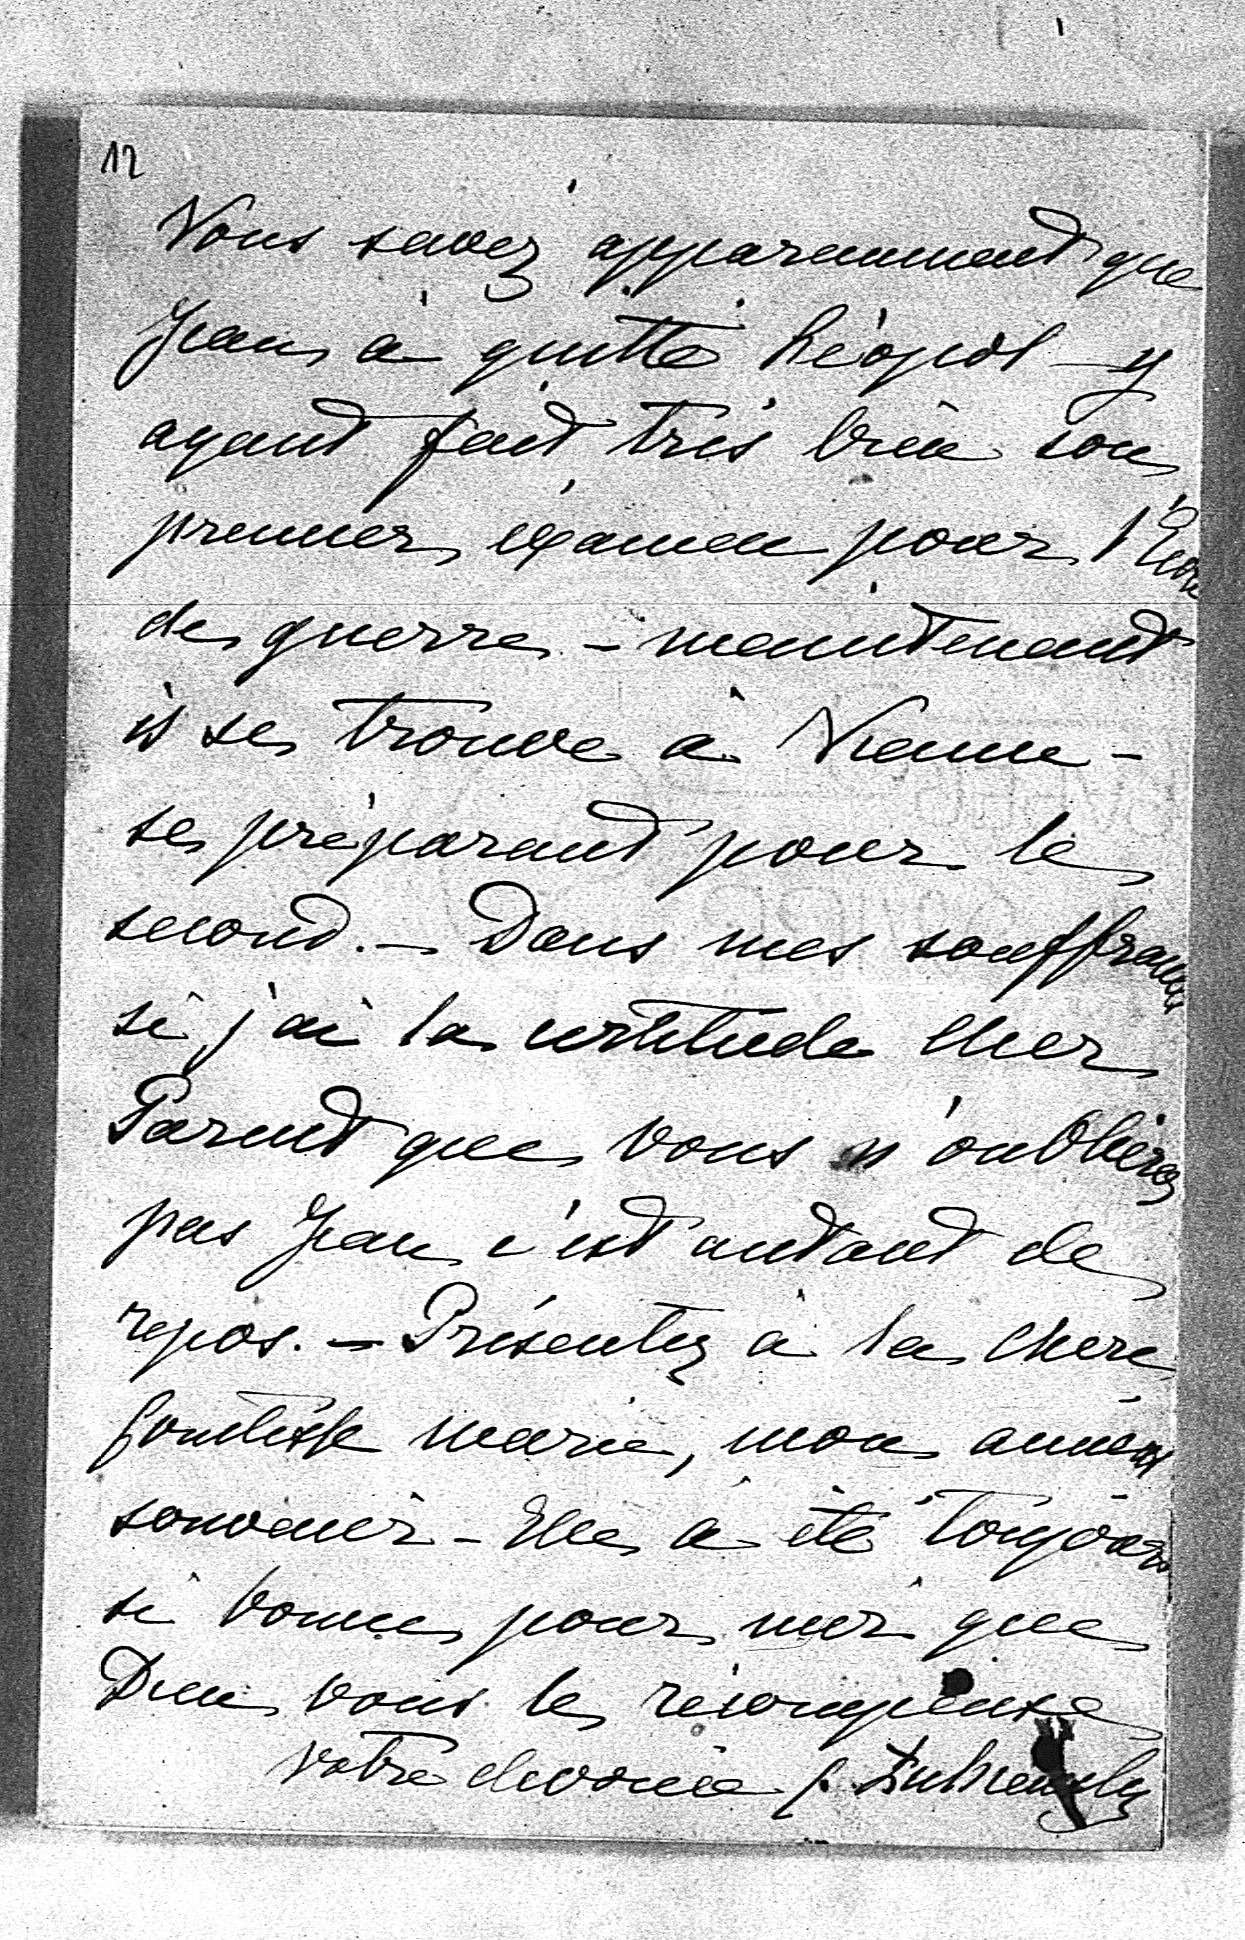 12
Vous savez apparemment que
Jean à quitté Léopol y
ayant fait très bien son
premier éxamen pour l'École
de guerre – maintenant
il se trouve à Vienne –
se préparant pour le
second. – Dans mes souffrances
si j'ai la certitude cher
Parent que vous n'oublierez
pas Jean c'est autant de
repos. – Présentez à la chère
Comtesse Marie, mon
souvenir – Elle à été toujours
si bonne pour moi que
Dieu vous le récompense
votre devouée